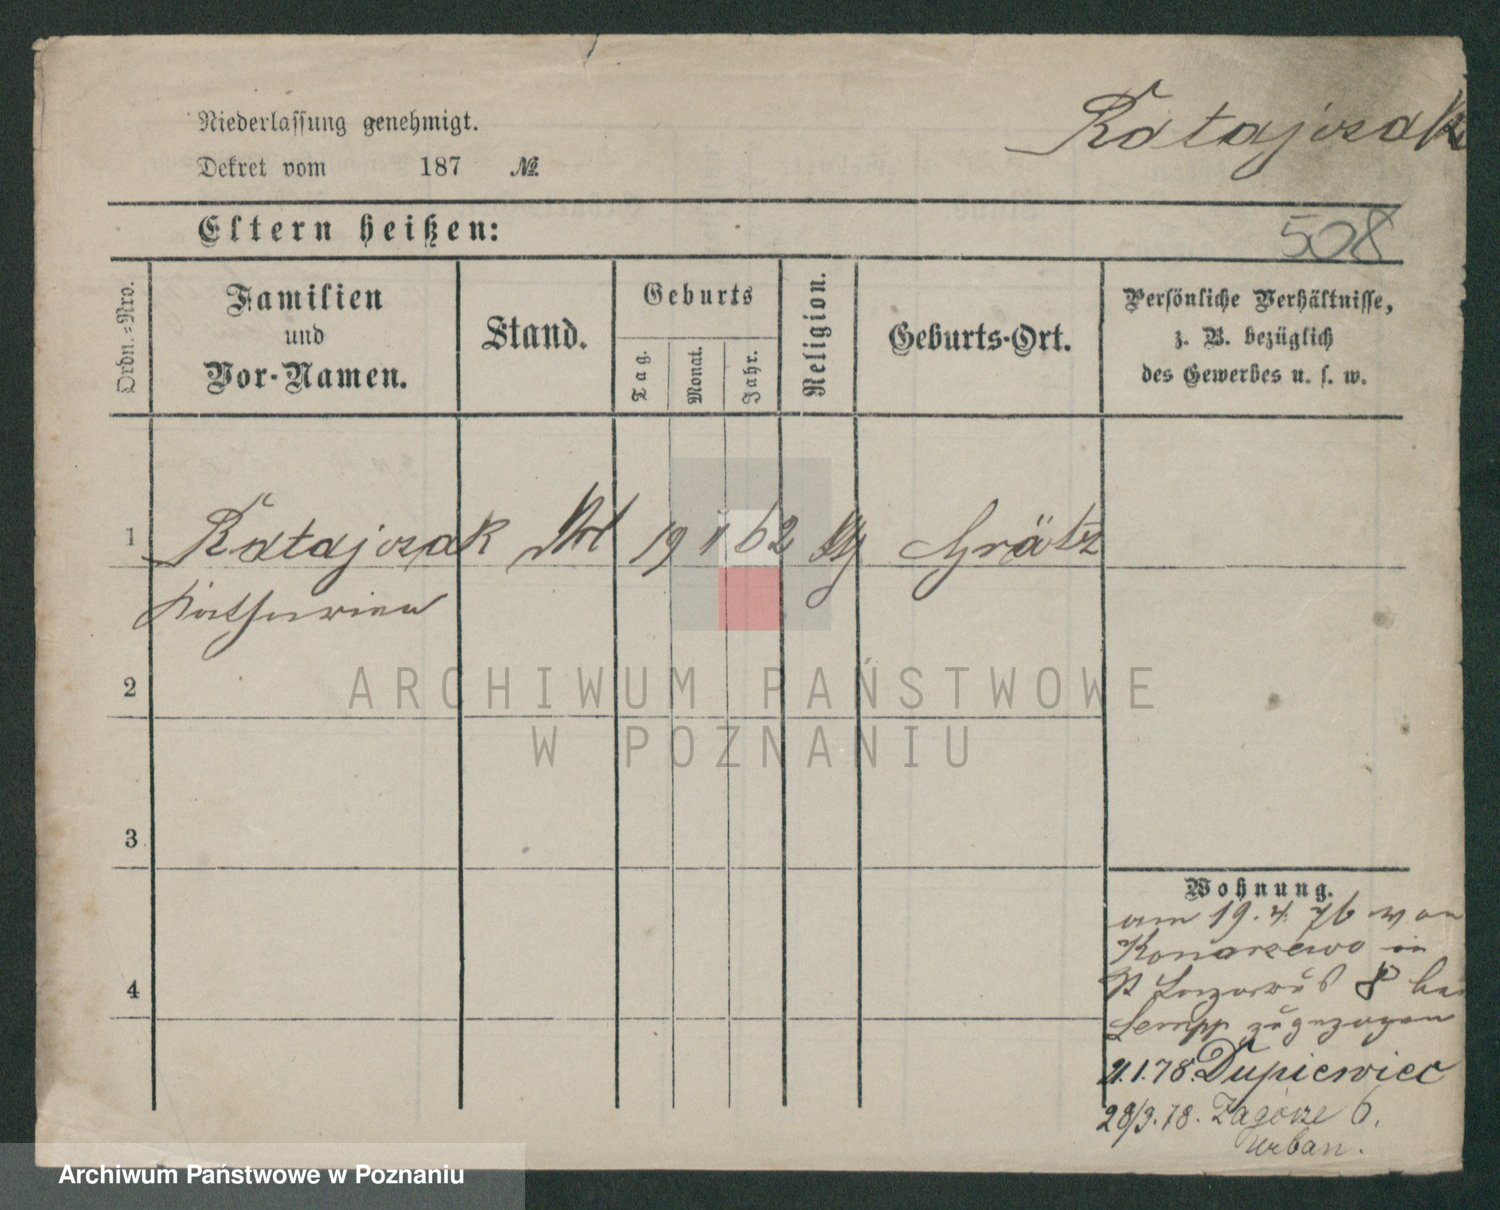 Niederlassung genehmigt.
Ratajczak
Dekret vom 187 №
Eltern heißen:
508
Ordn.=Nro.
Familien
und
Vor-Namen.
Stand.
Geburts
Tag.
Monat.
Jahr.
Religion.
Geburts-Ort.
Persönliche Verhältnisse,
z. B. bezüglich
des Gewerbes u. s. w.
1 Ratajczak 19 1 62 Grätz
Katharina
2
3
4
ARCHIWUM PAŃSTWOWE
W POZNANIU
Wohnung.
am 19.4.76 von
Konarzewo in
St Lazarus 8 bei
Lempp zugezogen
21.1.78. Dupiewiec
28/3.78. Zagórze 6.
Urban.
Archiwum Państwowe w Poznaniu